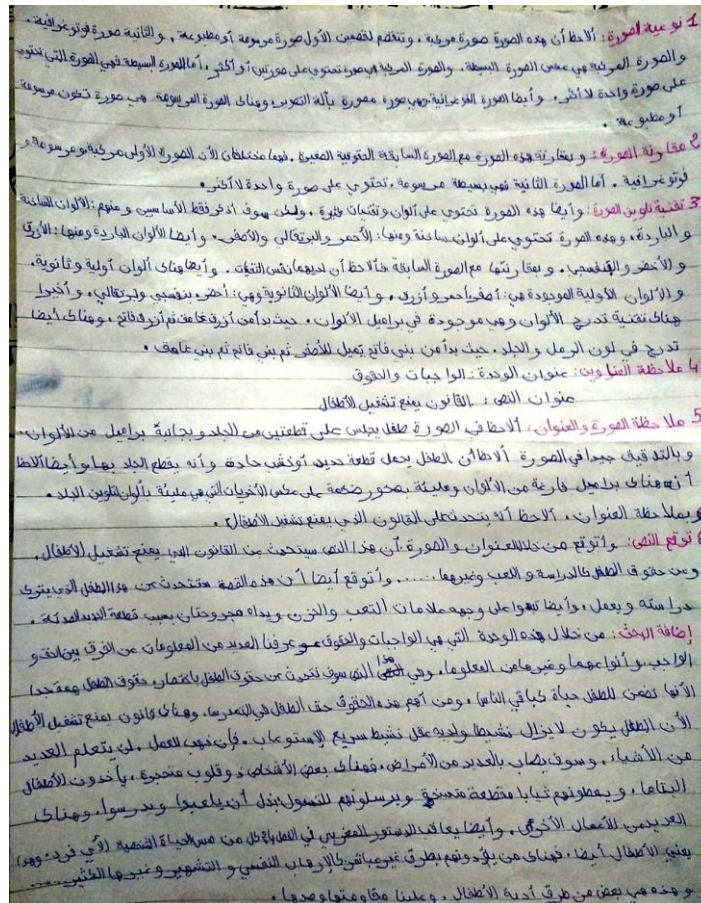 1 نوعية الصورة: ألاحظ أن هذه الصورة صورة مركبة، وتنقسم لقسمين الأول صورة مرسومة أو مطبوعة، والثانية صورة فوتوغرافية.
والصورة المركبة هي عكس الصورة البسيطة، والصورة المركبة هي صورة تحتوي على صورتين أو أكثر، أما الصورة البسيطة فهي الصورة التي تحتوي
على صورة واحدة لا أكثر. وأيضا الصورة الفوتوغرافية فهي صورة مصورة بآلة التصوير، وهناك الصورة المرسومة هي صورة تكون مرسومة
أو مطبوعة.
2 مقارنة الصورة: وبمقارنة هذه الصورة مع الصورة السابقة، فهما مختلفتان لأن الصورة الأولى مركبة ومرسومة و
فوتوغرافية. أما الصورة الثانية فهي بسيطة مرسومة، تحتوي على صورة واحدة لا أكثر.
3 تقنية تلوين الصورة: وأيضا هذه الصورة تحتوي على ألوان وتقنيات كثيرة، ولكن سوف أذكر فقط الأساسيين ومنهم: الألوان الساخنة
والباردة، وهذه الصورة تحتوي على ألوان ساخنة ومنها: الأحمر والبرتقالي والأصفر، وأيضا الألوان الباردة ومنها: الأزرق
والأخضر والبنفسجي. وبمقارنتها مع الصورة السابقة فألاحظ أن لديهما نفس التقنيات. وأيضا هناك ألوان أولية وثانوية.
والألوان الأولية الموجودة هي: أصفر، أحمر وأزرق، وأيضا الألوان الثانوية وهي: أخضر، بنفسجي وبرتقالي، وأخيرا
هناك تقنية تدرج الألوان وهي موجودة في براميل الألوان، حيث بدأ من أزرق غامق ثم أزرق فاتح، وهناك أيضا
تدرج في لون الرمل والجلد، حيث بدأ من بني فاتح يميل للأصفر ثم بني فاتح ثم بني غامق.
4 ملاحظة العناوين: عنوان الوحدة: الواجبات والحقوق
عنوان النص: القانون يمنع تشغيل الأطفال
5 ملاحظة الصورة والعنوان: ألاحظ في الصورة طفل يجلس على قطعتين من الجلد وبجانبه براميل من الألوان.
وبالتدقيق جيدا في الصورة ألاحظ أن الطفل يحمل قطعة حديد أو خشب حادة وأنه يقطع الجلد بها وأيضا ألاحظ
أنه هناك براميل فارغة من الألوان ومليئة بصخور ضخمة على عكس الأخريات التي هي مليئة بألوان لتلوين الجلد.
وبملاحظة العنوان، ألاحظ أنه يتحدث على القانون الذي يمنع تشغيل الأطفال.
6 توقع النص: وأتوقع من خلال العنوان والصورة أن هذا النص سيتحدث عن القانون الذي يمنع تشغيل الأطفال.
وعن حقوق الطفل كالدراسة واللعب وغيرها..... وأتوقع أيضا أن هذه القصة ستتحدث عن هذا الطفل الذي يترك
دراسته ويعمل، وأيضا تبدوا على وجهه علامات التعب والحزن ويداه مجروحتان بسبب قطعة الحديد الصدئة.
إضافة البحث: من خلال هذه الوحدة التي هي الواجبات والحقوق عرفنا العديد من المعلومات عن الفرق بين الحق و
الواجب وأنواعهما وغيرها من المعلومات، وفي هذا النص سوف نتحدث عن حقوق الطفل باختصار، حقوق الطفل مهمة جدا
لأنها تضمن للطفل حياة كباقي الناس، ومن أهم هذه الحقوق حق الطفل في التمدرس، وهناك قانون يمنع تشغيل الأطفال
لأن الطفل يكون لا يزال نشيطا ولديه عقل نشيط سريع الإستوعاب، فإن ذهب للعمل، لن يتعلم العديد
من الأشياء، وسوف يصاب بالعديد من الأمراض، فهناك بعض الأشخاص ذو قلوب متحجرة، يأخدون الأطفال
اليتاما، ويعطونهم ثيابا مقطعة متسخة ويرسلونهم للتسول بدل أن يلعبوا ويدرسوا، وهناك
العديد من الأعمال الأخرى. وأيضا يعاقب الدستور المغربي في الفصل كل من مس الحياة الشخصية لأي فرد، وهذا
يعني الأطفال أيضا، فهناك من يؤدونهم بطرق غير مباشرة كالإرهاب النفسي والتشهير وغيرها الكثير.....
وهذه هي بعض من طرق أدية الأطفال، وعلينا مقاومتها وصدها.